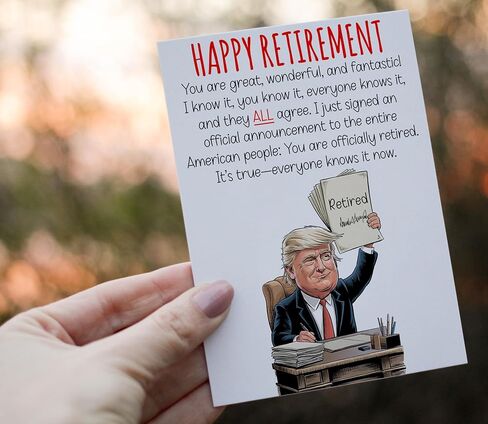 HAPPY RETIREMENT
You are great, wonderful, and fantastic!
I know it, you know it, everyone knows it,
and they ALL agree. I just signed an
official announcement to the entire
American people: You are officially retired.
It's true—everyone knows it now.
Retired